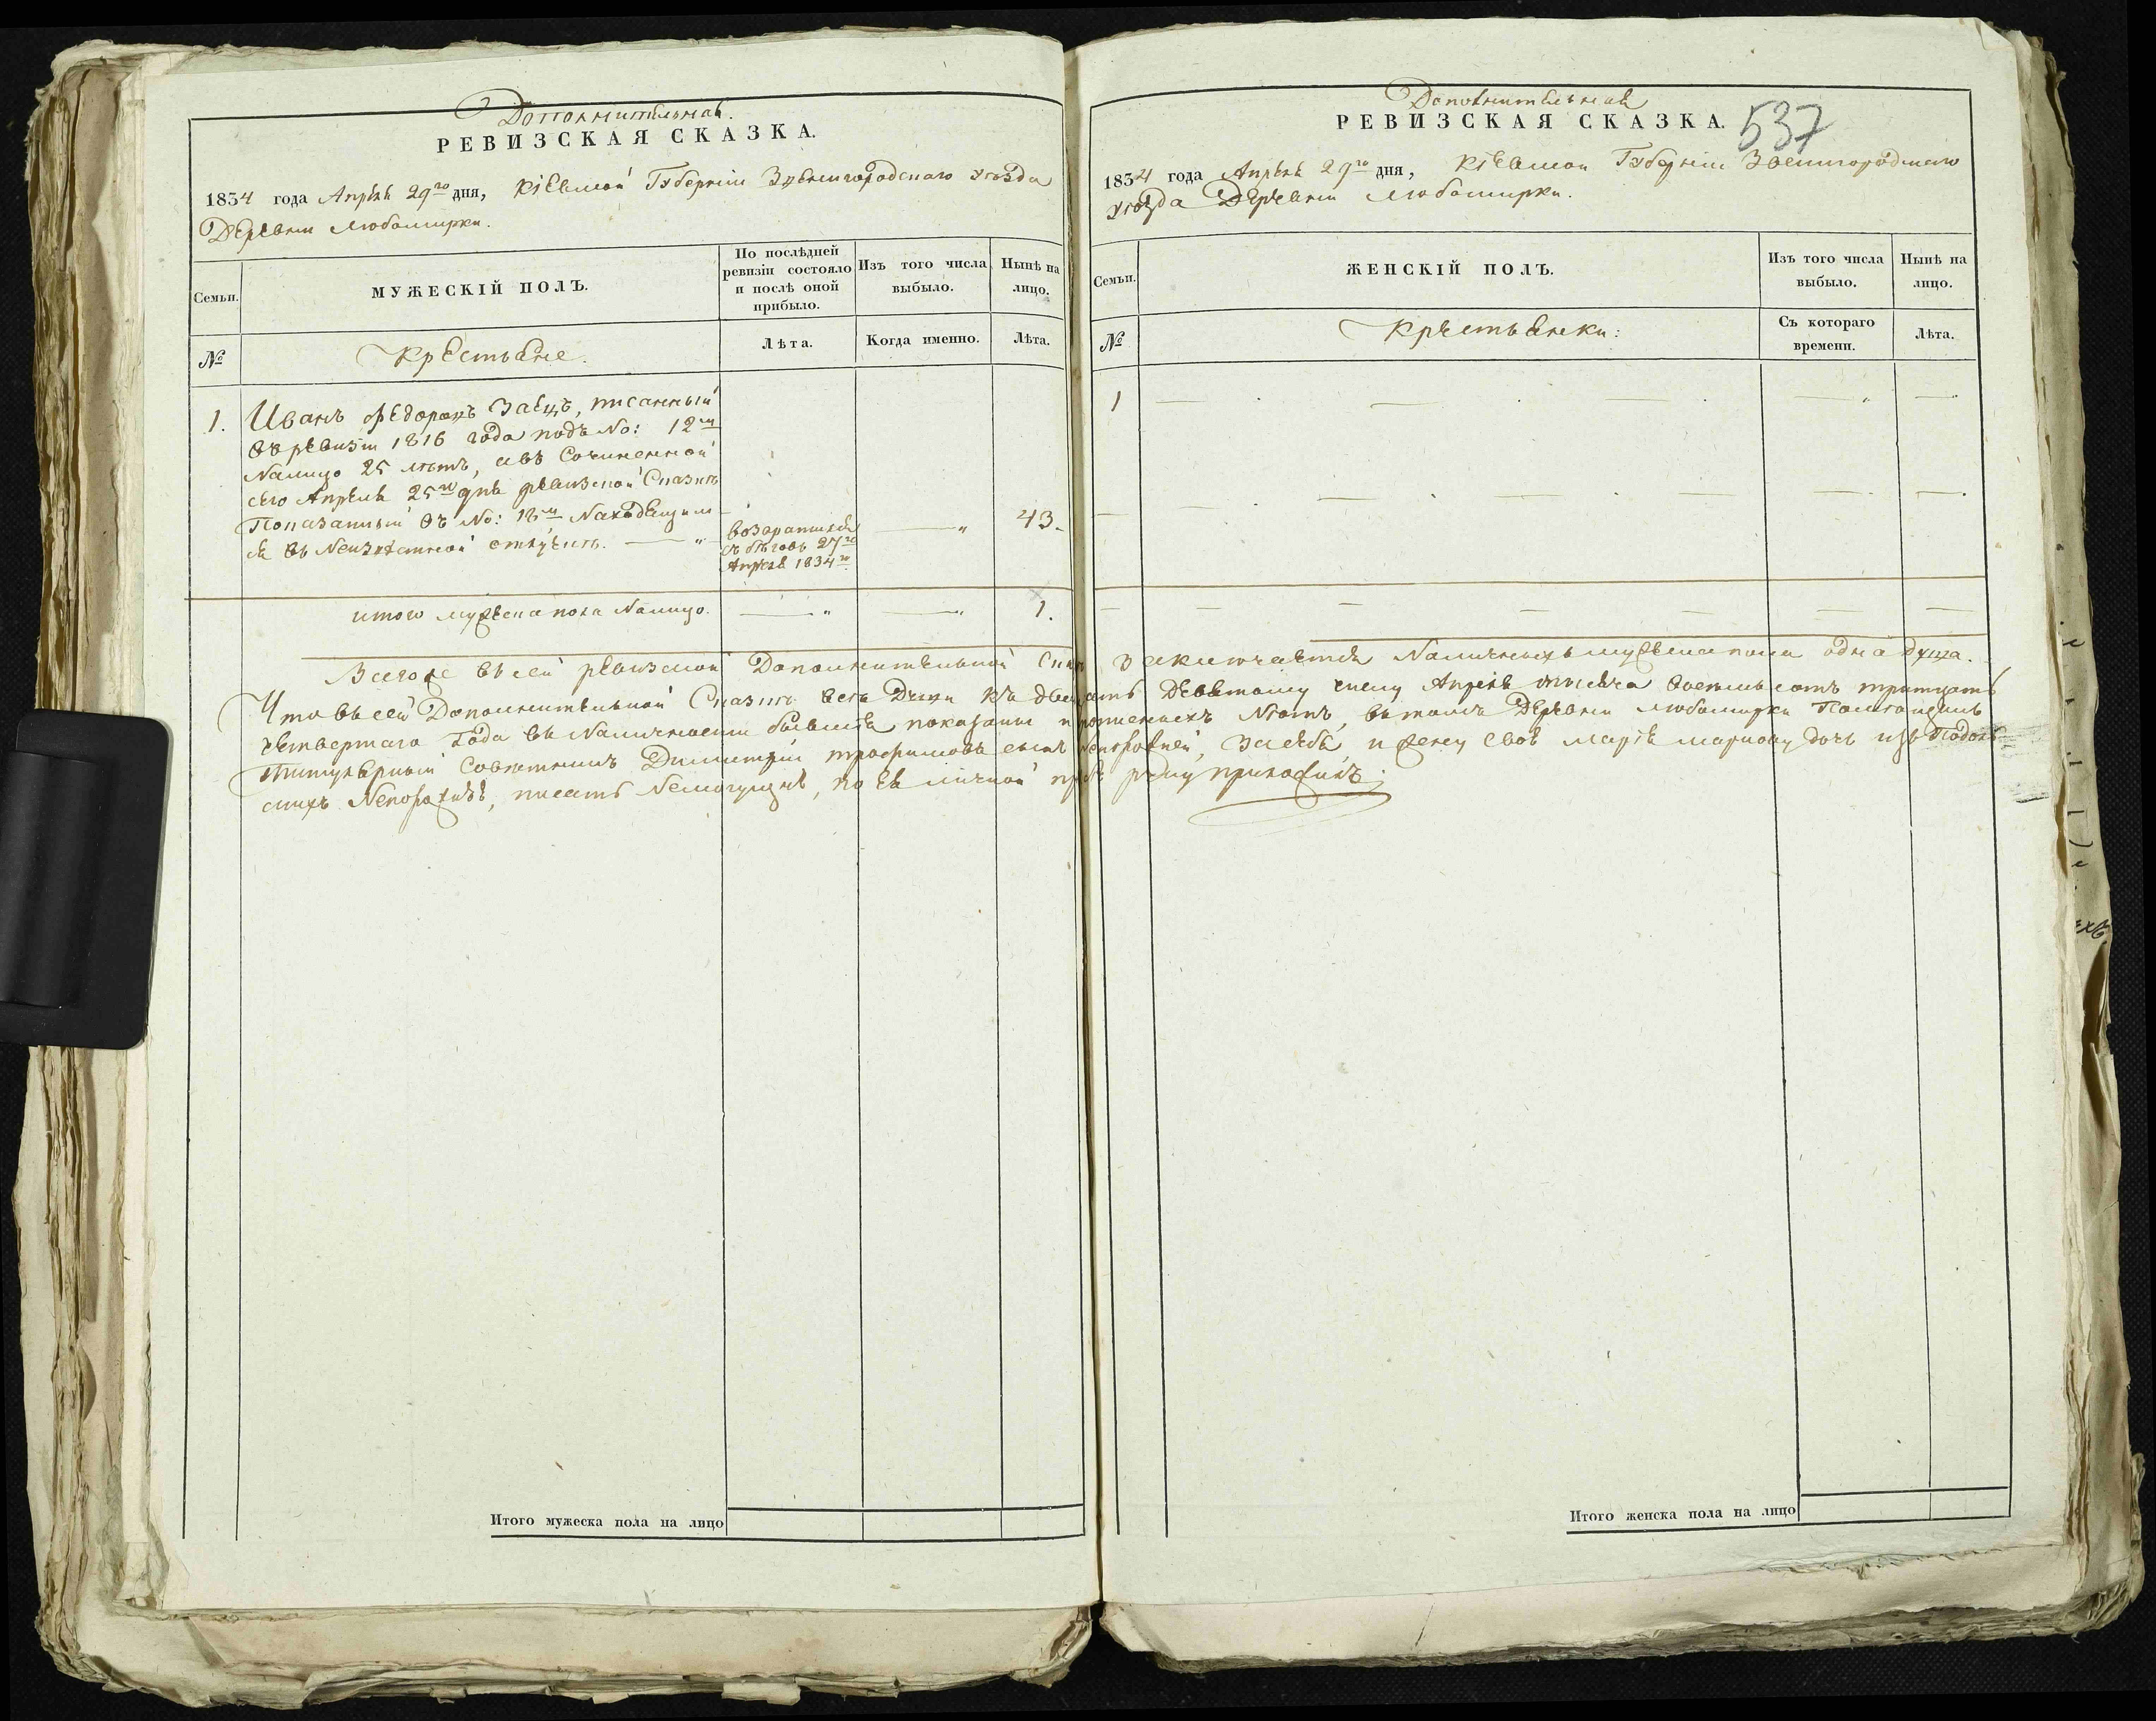 Дополнительная.
РЕВИЗСКАЯ СКАЗКА.
1834 года Апреля 29го дня, Кіевской Губерніи Звенигородскаго уѣзда
Деревни Любомирки.
Семьи.
МУЖЕСКІЙ ПОЛЪ.
По послѣдней ревизіи состояло и послѣ оной прибыло.
Изъ того числа выбыло.
Нынѣ на лицо.
№
Крестьяне.
Лѣта.
Когда именно.
Лѣта.
1. Иванъ Федоровъ Заецъ, писанный
въ ревизіи 1816 года подъ No: 12м
налицо 25 лѣтъ, авъ Сочиненной
сего Апреля 25го дня ревизской Сказкѣ
Показанный въ No: 18м Находящим
ся въ Неизвѣстной отлучкѣ. — „
возвратился
съ бѣговъ 27го
Апреля 1834го
— „
43.
итого мужеска пола налицо. — „ — „ 1.
Дополнительная
РЕВИЗСКАЯ СКАЗКА.
537
1834 года Апреля 29го дня, Кіевской Губерніи Звенигородскаго
уѣзда Деревни Любомирки.
Семьи.
ЖЕНСКІЙ ПОЛЪ.
Изъ того числа выбыло.
Нынѣ на лицо.
№
Крестьянки:
Съ котораго времени.
Лѣта.
1
Всегоже въ сей ревизской Дополнительной Сказкѣ заключается Наличныхъ мужеска пола одна душа.
Что въ сей Дополнительной Сказкѣ всѣ Души къ двадцать девятому числу Апреля тысяча восемьсотъ тритцать
четвертаго Года въ Наличности бывшія показаны и Лѣтъ, въ томъ Деревни Любомирки Помѣщикъ
Титулярный Совѣтникъ Димитрій трофимовъ сынъ Непорожній, За себя, и жену своя Марія Маркову дочь изъ Подол
скихъ Непорожнія, писать Немогущая, по ея личной прозьбѣ руку приложилъ.
Итого мужеска пола на лицо
Итого женска пола на лицо